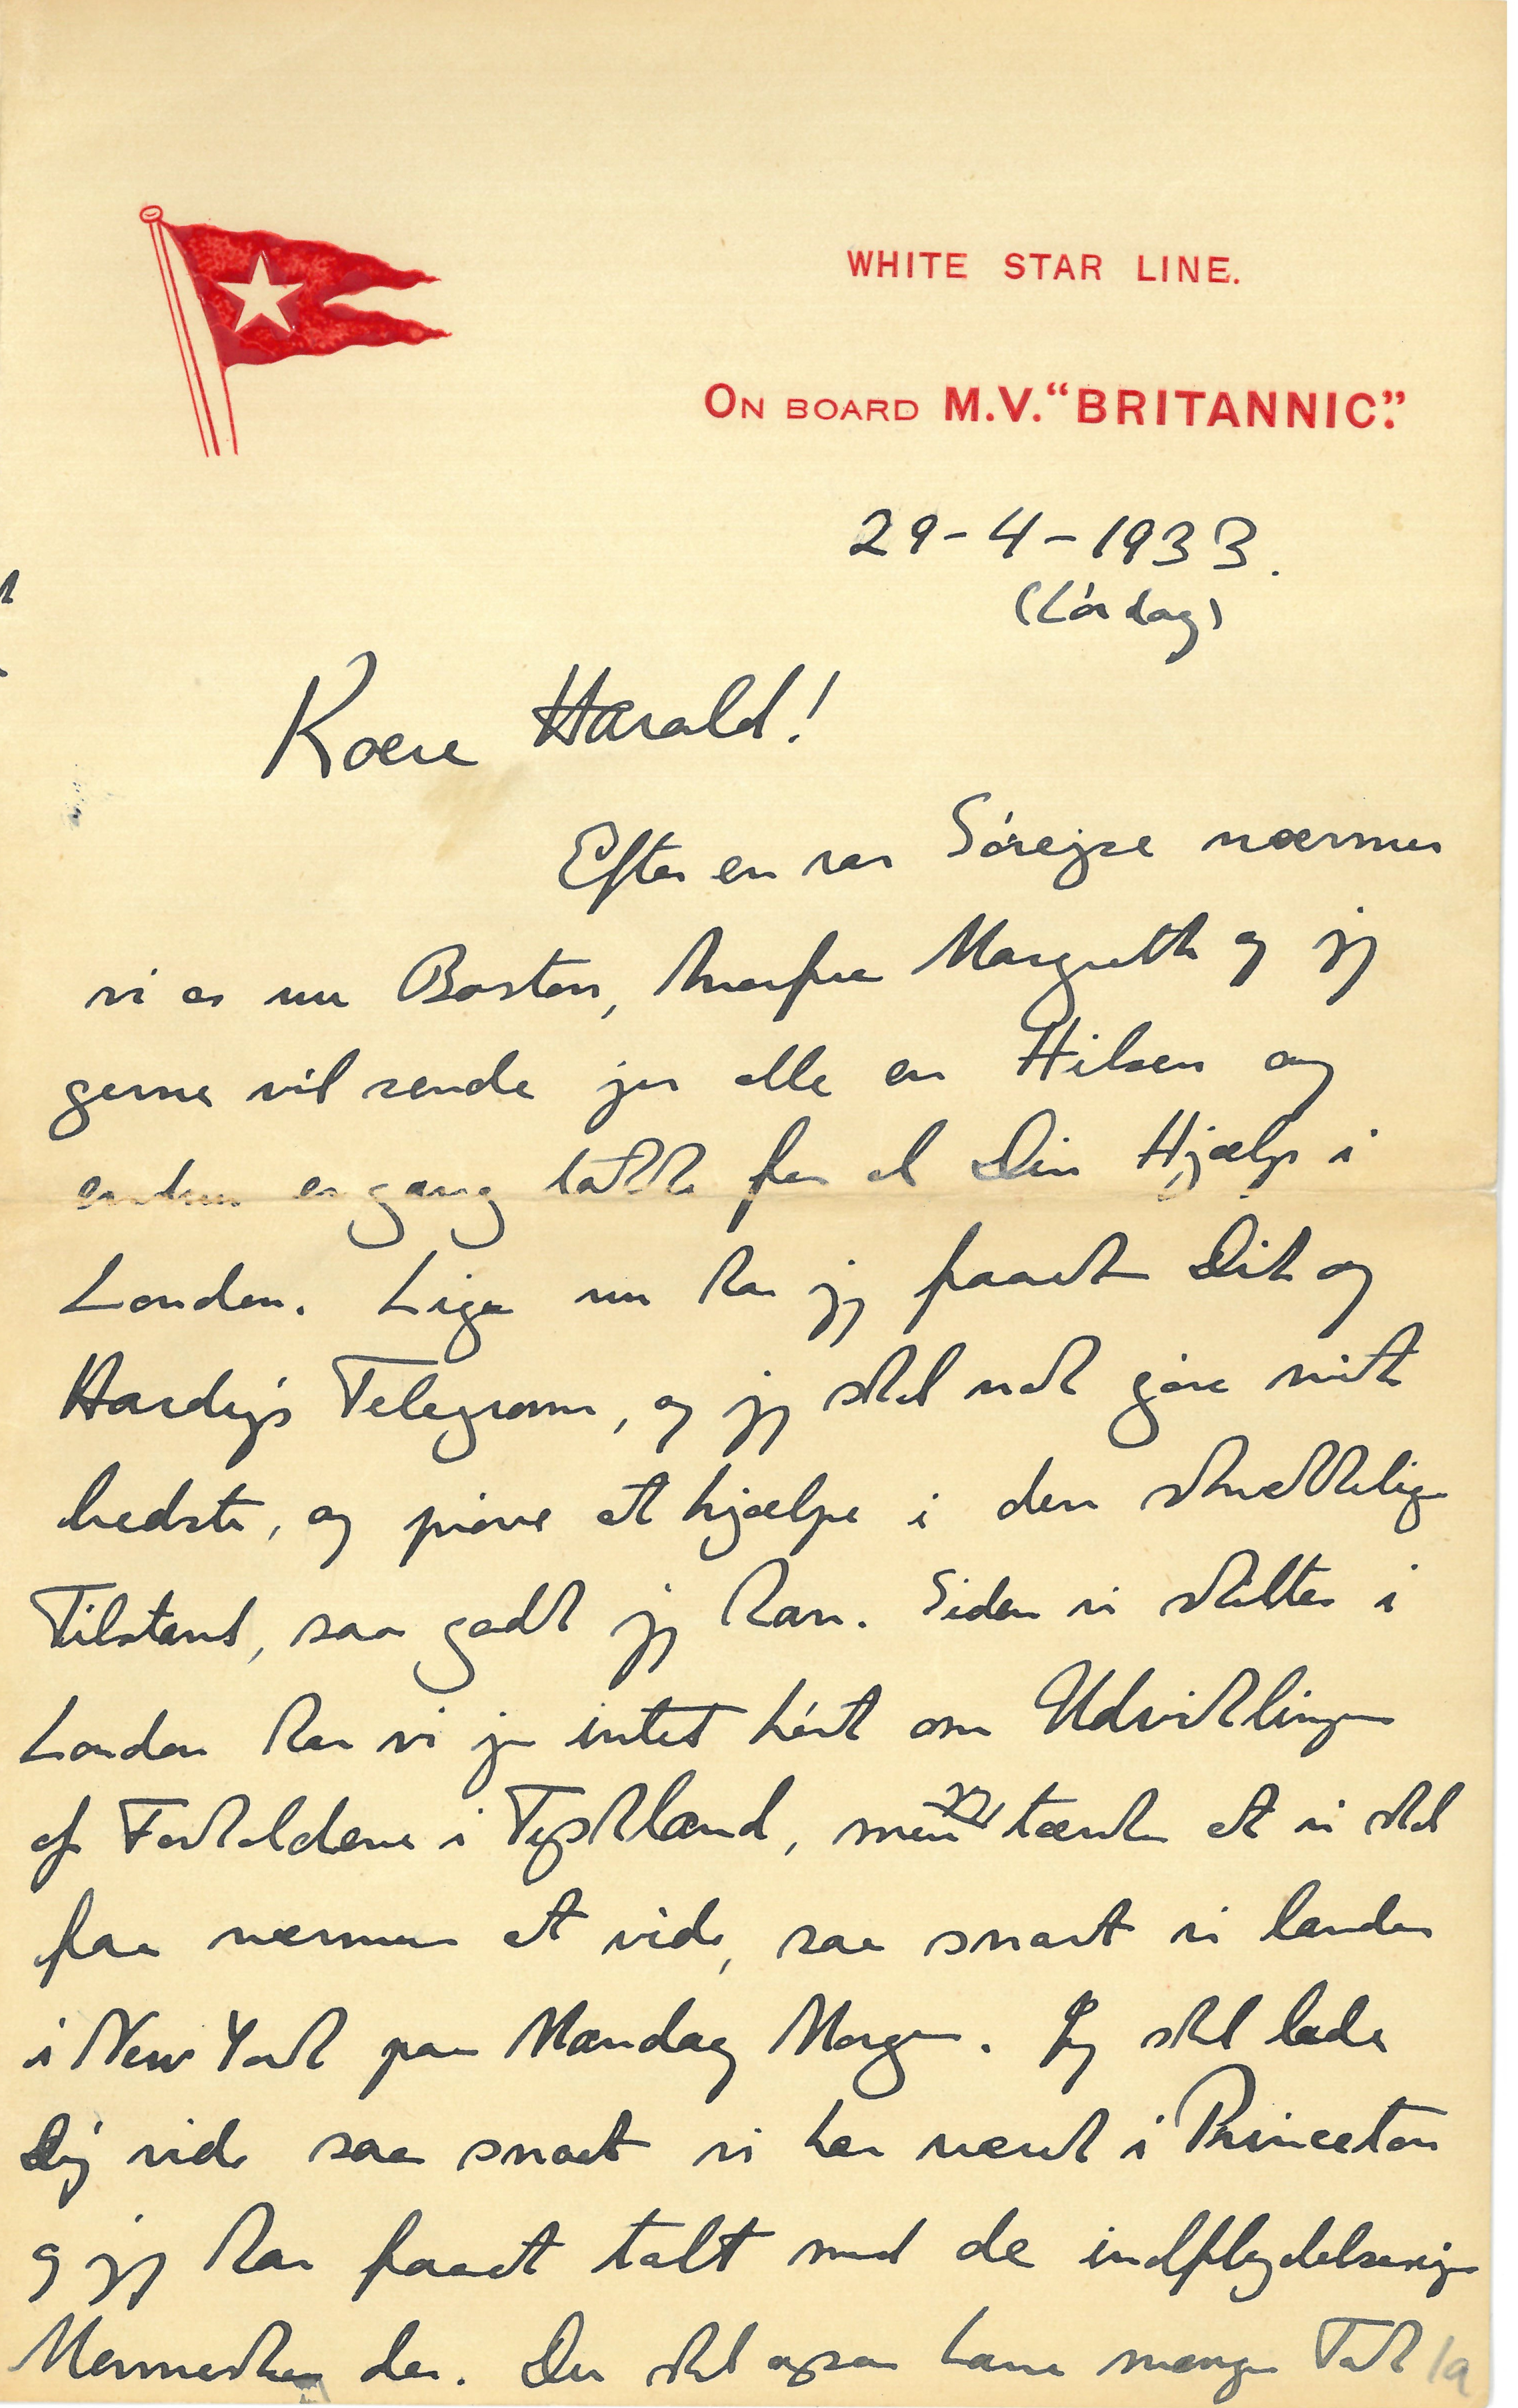 WHITE STAR LINE.
ON BOARD M.V. "BRITANNIC".
29-4-1933.
(Lördag)
Kære Harald!
Efter en rar Sórejse nærmer
vi os nu Boston, hvorfra Margrethe og jeg
gerne vil sende jer alle en Hilsen og
endnu en gang takke for al Din Hjælp i
London. Lige nu har jeg faaet Dit og
Hardy's Telegram, og jeg skal nok göre mit
bedste, og pröve at hjælpe i den skrækkelige
Tilstand, saa godt jeg kan. Siden vi skiltes i
London har vi jo intet hört om Udviklingen
af Forholdene i Tyskland, men vi tænker at vi skal
faa nærmere at vide, saa snart vi lander
i New York paa Mandag Morgen. Jeg skal lade
Dig vide saa snart vi har været i Princeton
og jeg har faaet talt med de indflydelsesrige
Mennesker der. Du skal ogsaa have mange Tak
1a